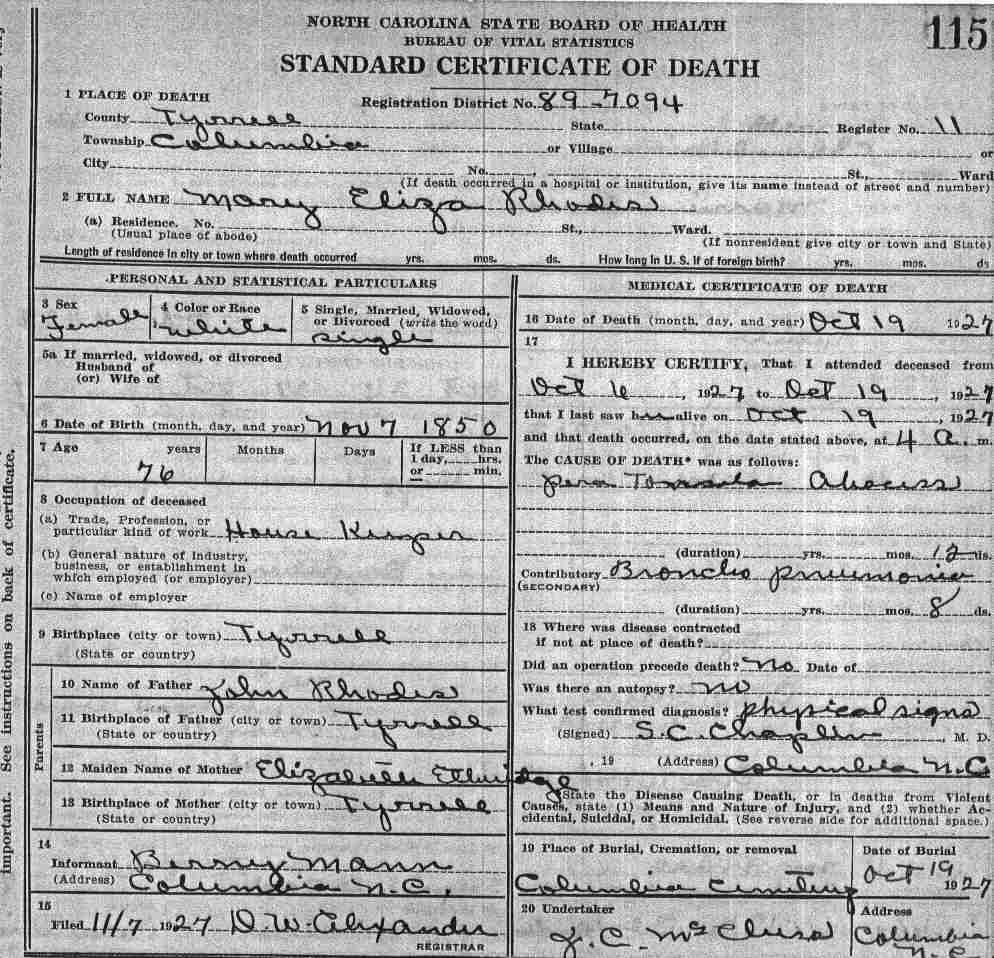 NORTH CAROLINA STATE BOARD OF HEALTH
BUREAU OF VITAL STATISTICS
115
STANDARD CERTIFICATE OF DEATH
1 PLACE OF DEATH
Registration District No. 89-7094
County Tyrrell State Register No. 11
Township Columbia or Village or
City No. , St., Ward
(If death occurred in a hospital or institution, give its name instead of street and number)
2 FULL NAME Mary Eliza Rhodes
(a) Residence. No. St., Ward.
(Usual place of abode) (If nonresident give city or town and State)
Length of residence in city or town where death occurred yrs. mos. ds. How long in U. S. if of foreign birth? yrs. mos. ds
PERSONAL AND STATISTICAL PARTICULARS
3 Sex Female
4 Color or Race White
5 Single, Married, Widowed,
or Divorced (write the word)
single
5a If married, widowed, or divorced
Husband of
(or) Wife of
6 Date of Birth (month, day, and year) Nov 7 1850
7 Age years Months Days If LESS than
1 day, hrs.
or min.
76
8 Occupation of deceased
(a) Trade, Profession, or
particular kind of work House Keeper
(b) General nature of industry,
business, or establishment in
which employed (or employer)
(c) Name of employer
9 Birthplace (city or town) Tyrrell
(State or country)
Parents
10 Name of Father John Rhodes
11 Birthplace of Father (city or town) Tyrrell
(State or country)
12 Maiden Name of Mother Elizabeth Ethridge
13 Birthplace of Mother (city or town) Tyrrell
(State or country)
14
Informant Mann
(Address) Columbia N.C.
15
Filed 11/7 1927 D. W. Alexander
REGISTRAR
MEDICAL CERTIFICATE OF DEATH
16 Date of Death (month, day, and year) Oct 19 1927
17
I HEREBY CERTIFY, That I attended deceased from
Oct 6, 1927 to Oct 19, 1927
that I last saw her alive on Oct 19, 1927
and that death occurred, on the date stated above, at 4 a. m.
The CAUSE OF DEATH* was as follows:
Abscess
(duration) yrs. mos. 12 ds.
Contributory Broncho pneumonia
(SECONDARY)
(duration) yrs. mos. 8 ds.
18 Where was disease contracted
if not at place of death?
Did an operation precede death? No Date of
Was there an autopsy? No
What test confirmed diagnosis? physical signs
(Signed) S.C. Chaplin, M. D.
, 19 (Address) Columbia N.C
*State the Disease Causing Death, or in deaths from Violent
Causes, state (1) Means and Nature of Injury, and (2) whether Ac-
cidental, Suicidal, or Homicidal. (See reverse side for additional space.)
19 Place of Burial, Cremation, or removal
Columbia Cemetery
Date of Burial
Oct 19 1927
20 Undertaker
Address
Columbia
N.C.
important. See instructions on back of certificate.